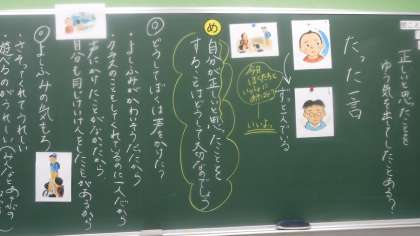 正しいと思ったことを
ゆう気を出してしたことある?
たった一言
すごしている
今日
ぼくたちと
いっしょに
いいよ。
め
自分が正しいと思ったことを
することはどうして大切なのでしょう
◎どうしてぼくは声をかけた?
・よしふみがかわいそうだったから
クラスのことをしてくれているのに一人だから
声にかけたことがなかったから
自分も同じけいけんをしたことがあるから
◎よしふみの気もち
・さそってくれてうれしい
・遊べるのがうれしい